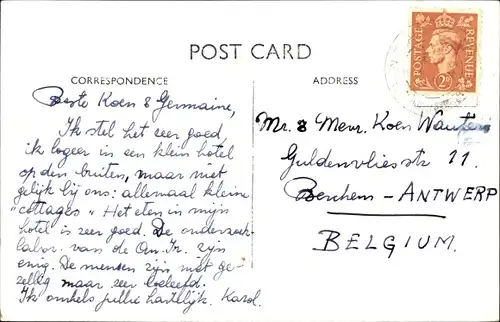 POST CARD
CORRESPONDENCE
Beste Koen & Germaine,
Ik stel het zeer goed,
ik logeer in een klein hotel
op den buiten, maar niet
gelijk bij ons: allemaal kleine
"cottages". Het eten in mijn
hotel is zeer goed. De onderzoek-
labor. van de An. Tr. zijn
enig. De mensen zijn niet ge-
zellig maar zeer beleefd.
Ik omhels jullie hartelijk. Karol.
ADDRESS
Mr. & Mevr. Koen Wauters
Guldenvliesstr 11.
Berchem - ANTWERP
BELGIUM.
POSTAGE
REVENUE
2D